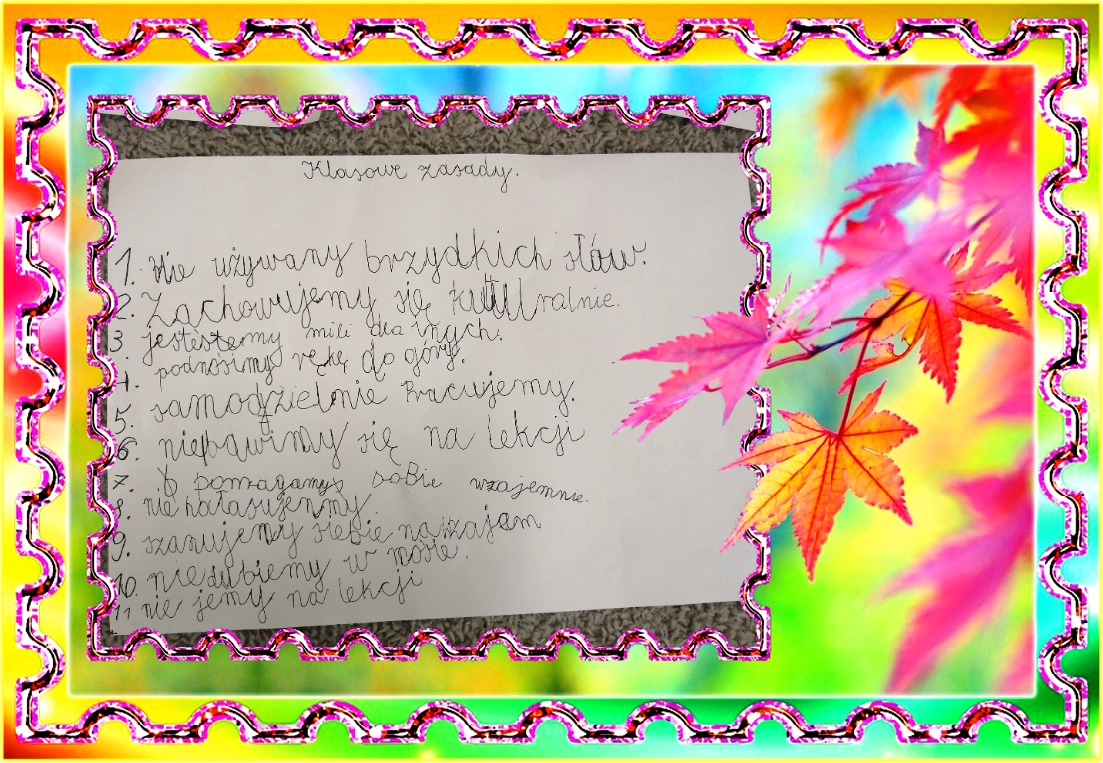 Klasowe zasady.
1. Nie używany brzydkich słów.
2. Zachowujemy się kulturalnie.
3. jestestemy mili dla inych.
4. podnosimy rękę do góry.
5. samodzielnie pracujemy.
6. niebawimy się na lekcji
7. pomagamys sobie wzajemnie.
8. nie hałasujemmy.
9. szanujemy siebie nazajam
10. niedubiemy w nosie.
11 nie jemy na lekcji